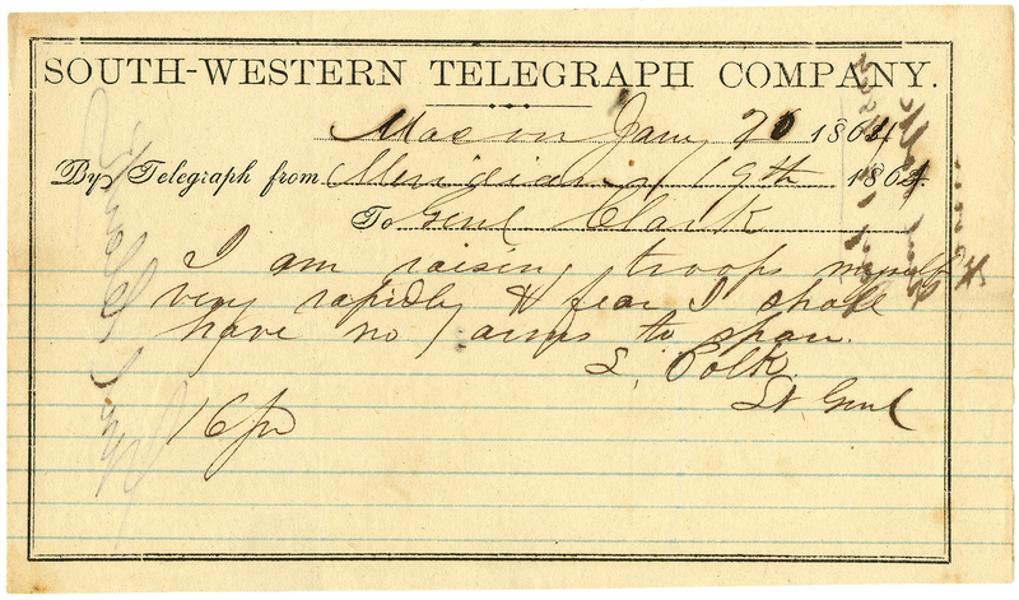 SOUTH-WESTERN TELEGRAPH COMPANY.
Macon Jany 20 1864
By Telegraph from Meridian 19th 1864.
To Genl Clark
I am raising troops myself
very rapidly & fear I shall
have no arms to spare.
L. Polk
Lt Genl
16